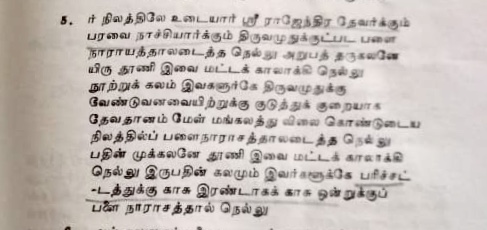 5. ர் நிலத்திலே உடையார் ஸ்ரீ ராஜேந்திர தேவர்க்கும்
பரவை நாச்சியார்க்கும் திருவமுதுக்குட்பட பளை
நாராயத்தாலடைத்த நெல்லு அறுபத் தருகலனே
யிரு தூணி இவை மட்டக் காலாக்கி நெல்லு
நூற்றுக் கலம் இவகளுர்கே திருவமுதுக்கு
வேண்டுவனவையிற்றுக்கு குடுத்துக் குறையாக
தேவதானம் மேள் மங்கலத்து விலை கொண்டுடைய
நிலத்தில்ப் பளைநாராசத்தாலடைத்த நெல்லு
பதின் முக்கலனே தூணி இவை மட்டக் காலாக்கி
நெல்லு இருபதின் கலமும் இவர்களுக்கே பரிச்சட்
-டத்துக்கு காசு இரண்டாகக் காசு ஒன்றுக்குப்
பளை நாராசத்தால் நெல்லு